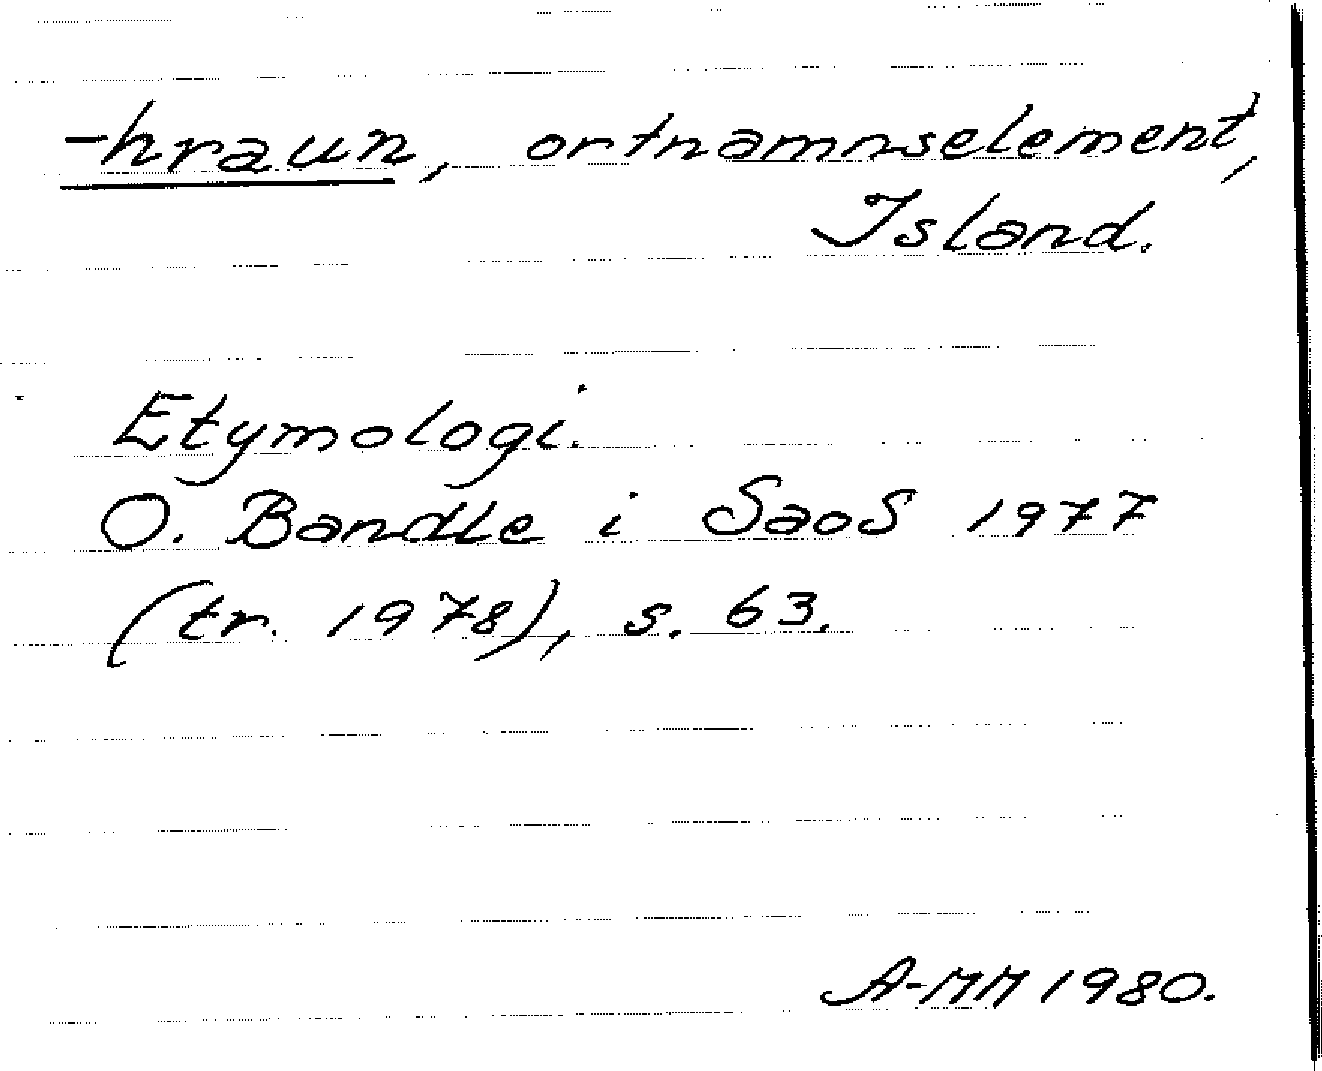 -hraun, ortnamnselement,
Island.
Etymologi.
O. Bandle i SaoS 1977
(tr. 1978), s. 63.
A-MM 1980.